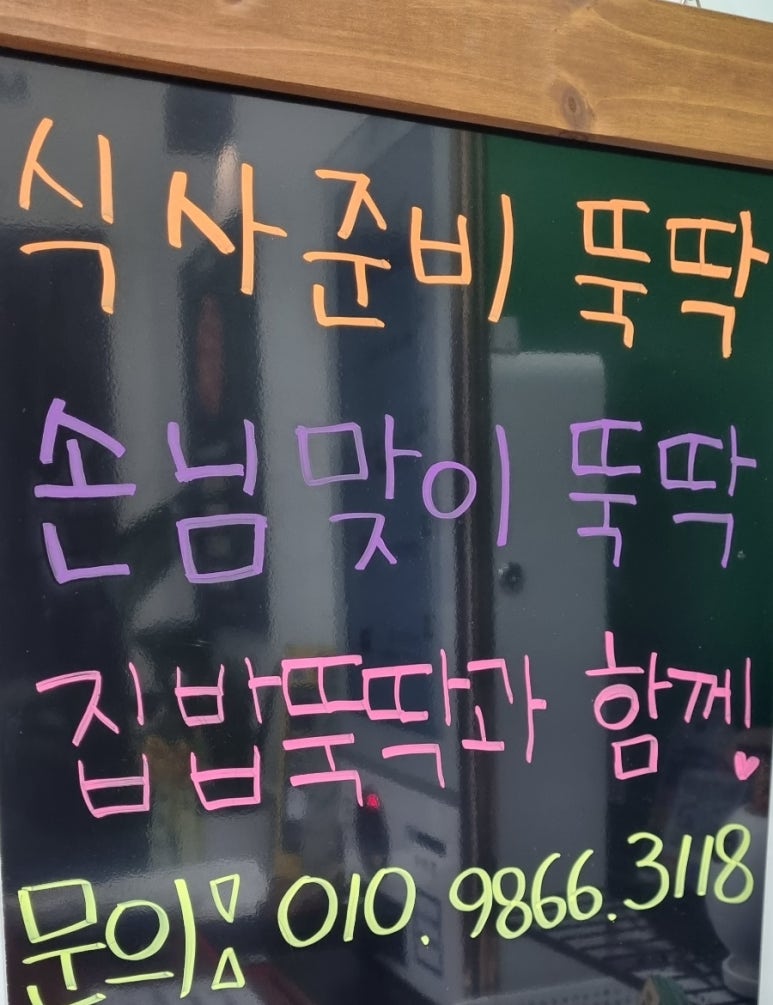 식사준비 뚝딱
손님맞이 뚝딱
집밥뚝딱과 함께!
문의: 010.9866.3118